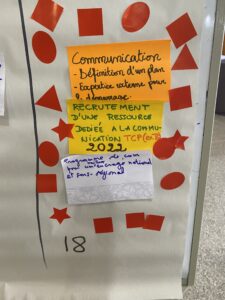 Communication
- Définition d'un plan
- Expertise externe pour
le démarrage.
RECRUTEMENT
D'UNE RESSOURCE
DEDIÉE A LA COMMU-
NICATION TCP
2022
Programme de com
pour un ancrage national
et sous-régional
18